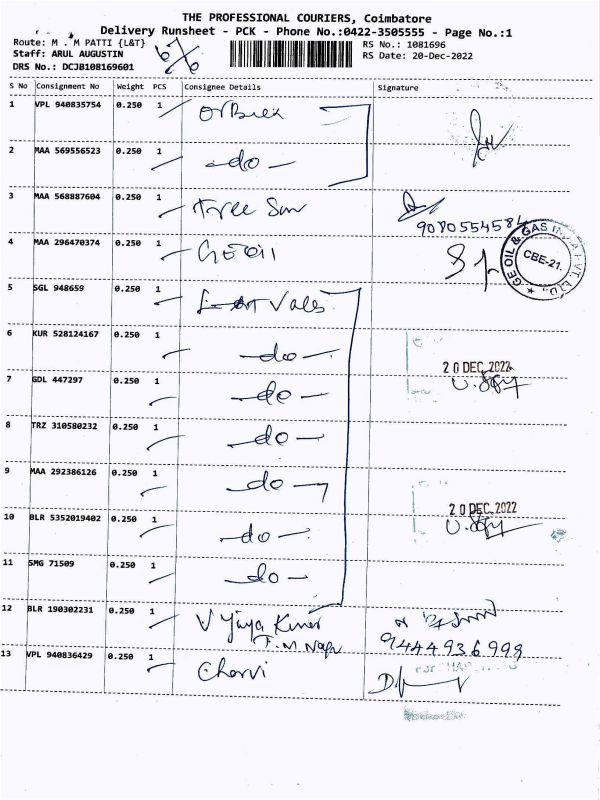 THE PROFESSIONAL COURIERS, Coimbatore
Delivery Runsheet - PCK - Phone No.:0422-3505555 - Page No.:1
Route: M . M PATTI {L&T}
RS No.: 1081696
Staff: ARUL AUGUSTIN
RS Date: 20-Dec-2022
DRS No.: DCJB108169601
S No Consignment No Weight PCS Consignee Details Signature
1 VPL 940835754 0.250 1
2 MAA 569556523 0.250 1 -do-
3 MAA 568887604 0.250 1 Tree Sun
9080554584
4 MAA 296470374 0.250 1 GEOil
GE OIL & GAS INDIA PVT. LTD.,
CBE-21.
5 SGL 948659 0.250 1
6 KUR 528124167 0.250 1 -do-
20 DEC 2022
7 GDL 447297 0.250 1 -do-
8 TRZ 310580232 0.250 1 -do-
9 MAA 292386126 0.250 1 -do-
20 DEC 2022
10 BLR 5352019402 0.250 1 -do-
11 SMG 71509 0.250 1 -do-
12 BLR 190302231 0.250 1 Vijaya Kumar
9444936998
13 VPL 940836429 0.250 1 Charvi